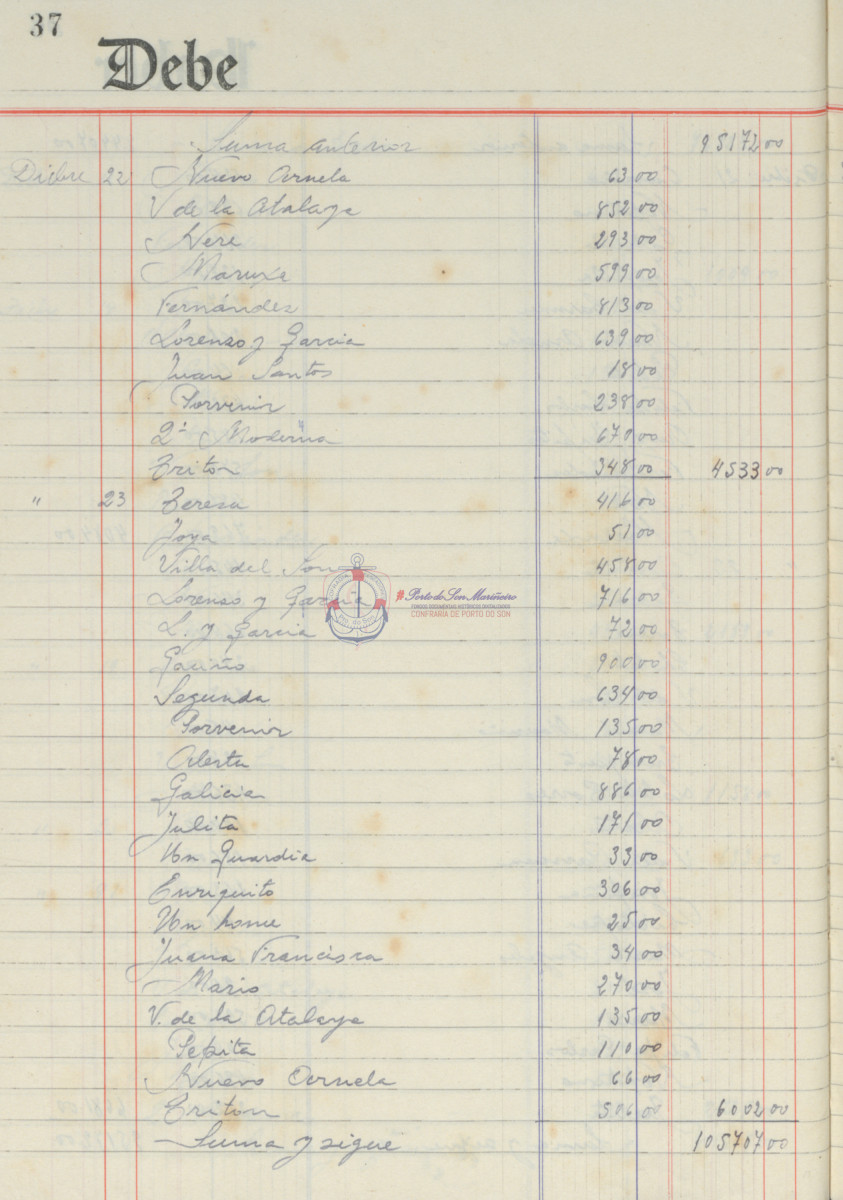 37
Debe
Suma anterior 95172 00
Dicbre 22 Nuevo Ornela 63 00
V de la Atalaya 852 00
Nere 293 00
Maruxa 599 00
Fernández 813 00
Lorenzo y Garcia 639 00
Juan Santos 18 00
Porvenir 238 00
2ª Moderna 670 00
Triton 348 00 4533 00
" 23 Teresa 416 00
Joya 51 00
Villa del Son 458 00
Lorenzo y Garcia 716 00
L. y Garcia 72 00
Gaciño 900 00
Segunda 634 00
Porvenir 135 00
Alerta 78 00
Galicia 886 00
Julita 171 00
Un Guardia 33 00
Enriquito 306 00
Un home 25 00
Juana Francisca 34 00
Mario 270 00
V. de la Atalaya 135 00
Pepita 110 00
Nuevo Ornela 66 00
Triton 506 00 6002 00
Suma y sigue 105707 00
#Porto do Son Mariñeiro
FONDOS DOCUMENTAIS HISTÓRICOS DIXITALIZADOS
CONFRARIA DE PORTO DO SON